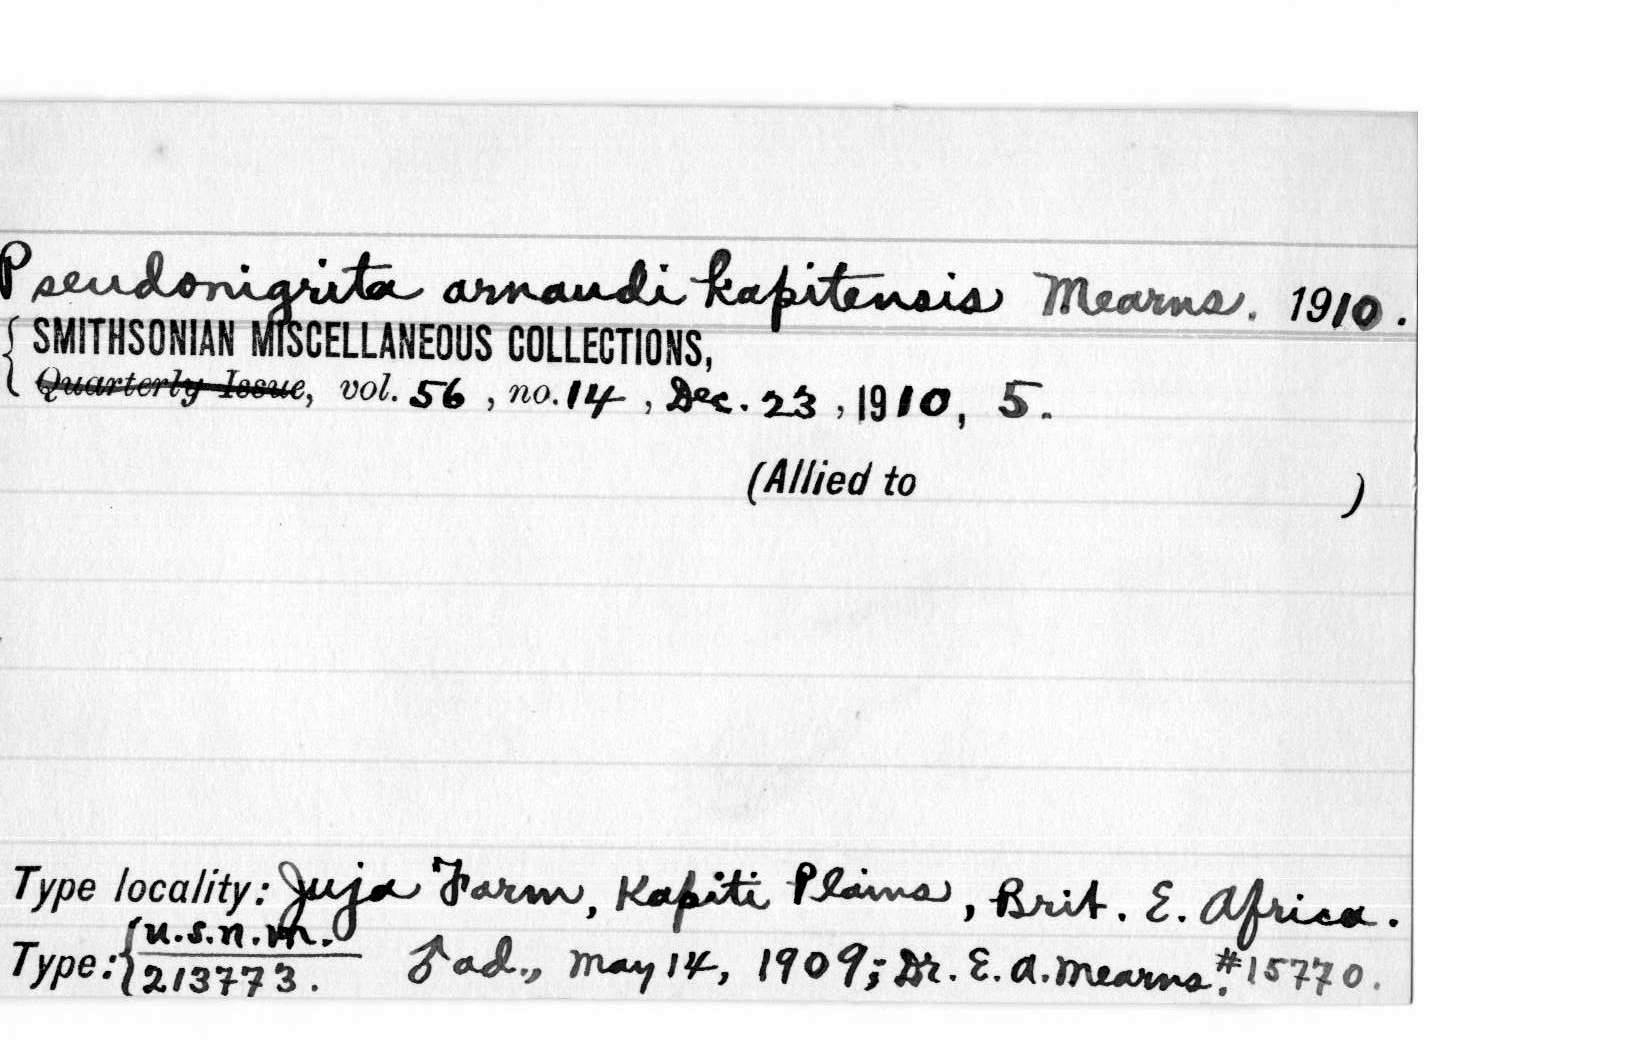 Pseudonigrita arnaudi kapitensis Mearns. 1910.
SMITHSONIAN MISCELLANEOUS COLLECTIONS,
Quarterly Issue, vol. 56, no. 14, Dec. 23, 1910, 5.
(Allied to )
Type locality: Juja Farm, Kapiti Plains, Brit. E. Africa.
Type: { U.S.N.M.
213773. ♂ ad., May 14, 1909; Dr. E. A. Mearns. #15770.